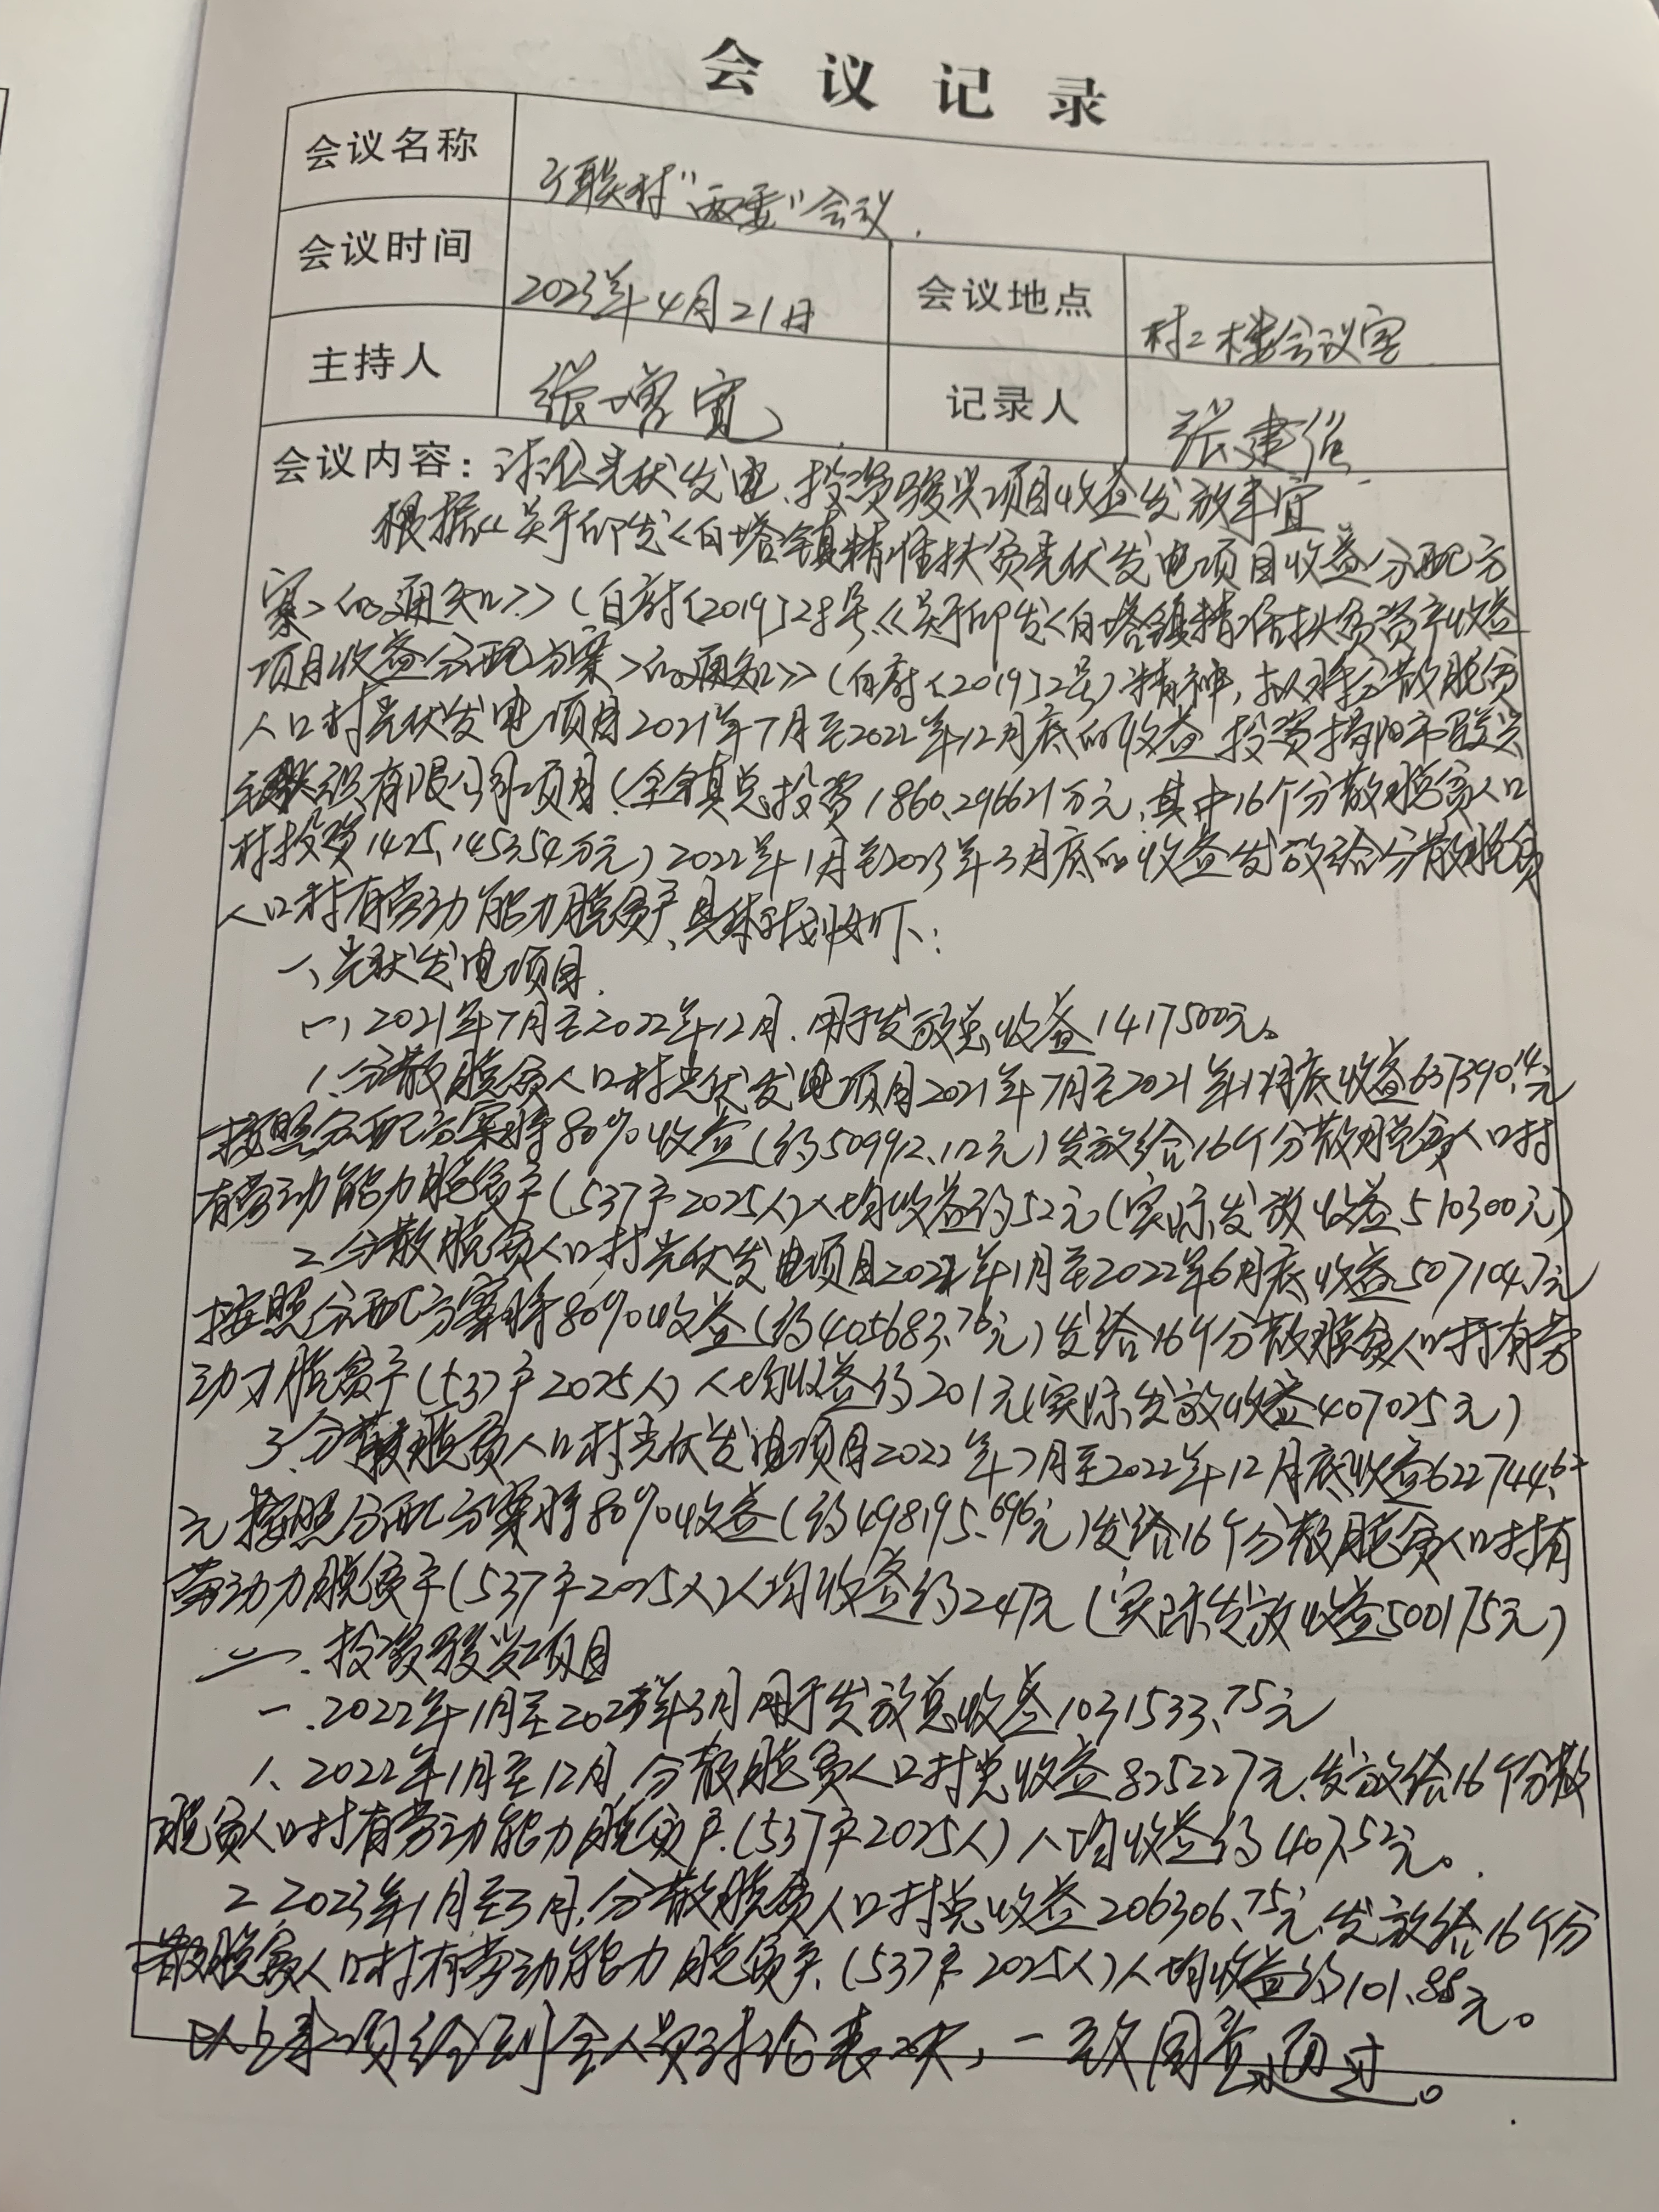 会议记录
会议名称 联村“两委”会议.
会议时间 2023年4月21日 会议地点 村二楼会议室
主持人 张增宽 记录人 张建
会议内容：讨论光伏发电、投资骏兴项目收益发放事宜
根据《关于印发<白塔镇精准扶贫光伏发电项目收益分配方
案>的通知》（白府〔2019〕28号《关于印发<白塔镇精准扶贫资产收益
项目收益分配方案>的通知》（白府〔2019〕2号）精神，拟将分散脱贫
人口村光伏发电项目2021年7月至2022年12月底的收益、投资揭阳市骏兴
织有限公司项目（全镇总投资1860.296621万元，其中16个分散脱贫人口
村投资1425.145354万元）2022年1月至2023年3月底的收益发放给分散脱贫
人口村有劳动能力脱贫户，具体计划如下：
一、光伏发电项目.
(一)2021年7月至2022年12月.用于发放总收益1417500元。
1.分散脱贫人口村光伏发电项目2021年7月至2021年12月底收益637390.14元
按照分配方案将80%收益（约509912.112元）发放给16个分散脱贫人口村
有劳动能力脱贫户（537户2025人）人均收益约52元（实际发放收益510300元）
2.分散脱贫人口村光伏发电项目2022年1月至2022年6月底收益507104.7元
按照分配方案将80%收益（约405683.76元）发给16个分散脱贫人口村有劳
动力脱贫户（537户2025人）人均收益约201元（实际发放收益407025元）
3.分散脱贫人口村光伏发电项目2022年7月至2022年12月底收益622744.62
元 按照分配方案将80%收益（约498195.696元）发给16个分散脱贫人口村有
劳动力脱贫户（537户2025人）人均收益约247元（实际发放收益500175元）
二.投资骏兴项目
一.2022年1月至2023年3月用于发放总收益1031533.75元
1、2022年1月至12月，分散脱贫人口村总收益825227元、发放给16个分散
脱贫人口村有劳动能力脱贫户.（537户2025人）人均收益约407.52元。
2.2023年1月至3月.分散脱贫人口村总收益206306.75元、发放给16个分
散脱贫人口村有劳动能力脱贫户、（537户2025人）人均收益约101.88元。
以上事项经到会人员讨论表决，一致同意通过。